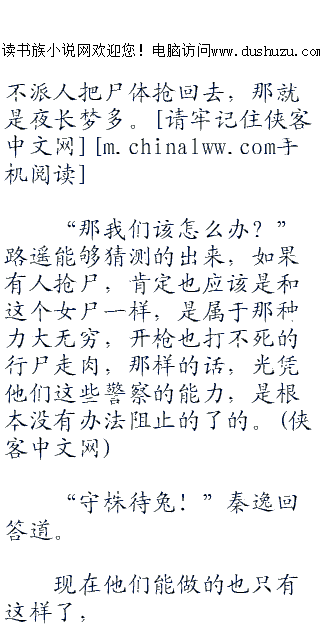 读书族小说网欢迎您！电脑访问www.dushuzu.com
不派人把尸体抢回去，那就
是夜长梦多。[请牢记住侠客
中文网][m.china1ww.com手
机阅读]
“那我们该怎么办？”
路遥能够猜测的出来，如果
有人抢尸，肯定也应该是和
这个女尸一样，是属于那种
力大无穷，开枪也打不死的
行尸走肉，那样的话，光凭
他们这些警察的能力，是根
本没有办法阻止的了的。(侠
客中文网)
“守株待兔！”秦逸回
答道。
现在他们能做的也只有
这样了，